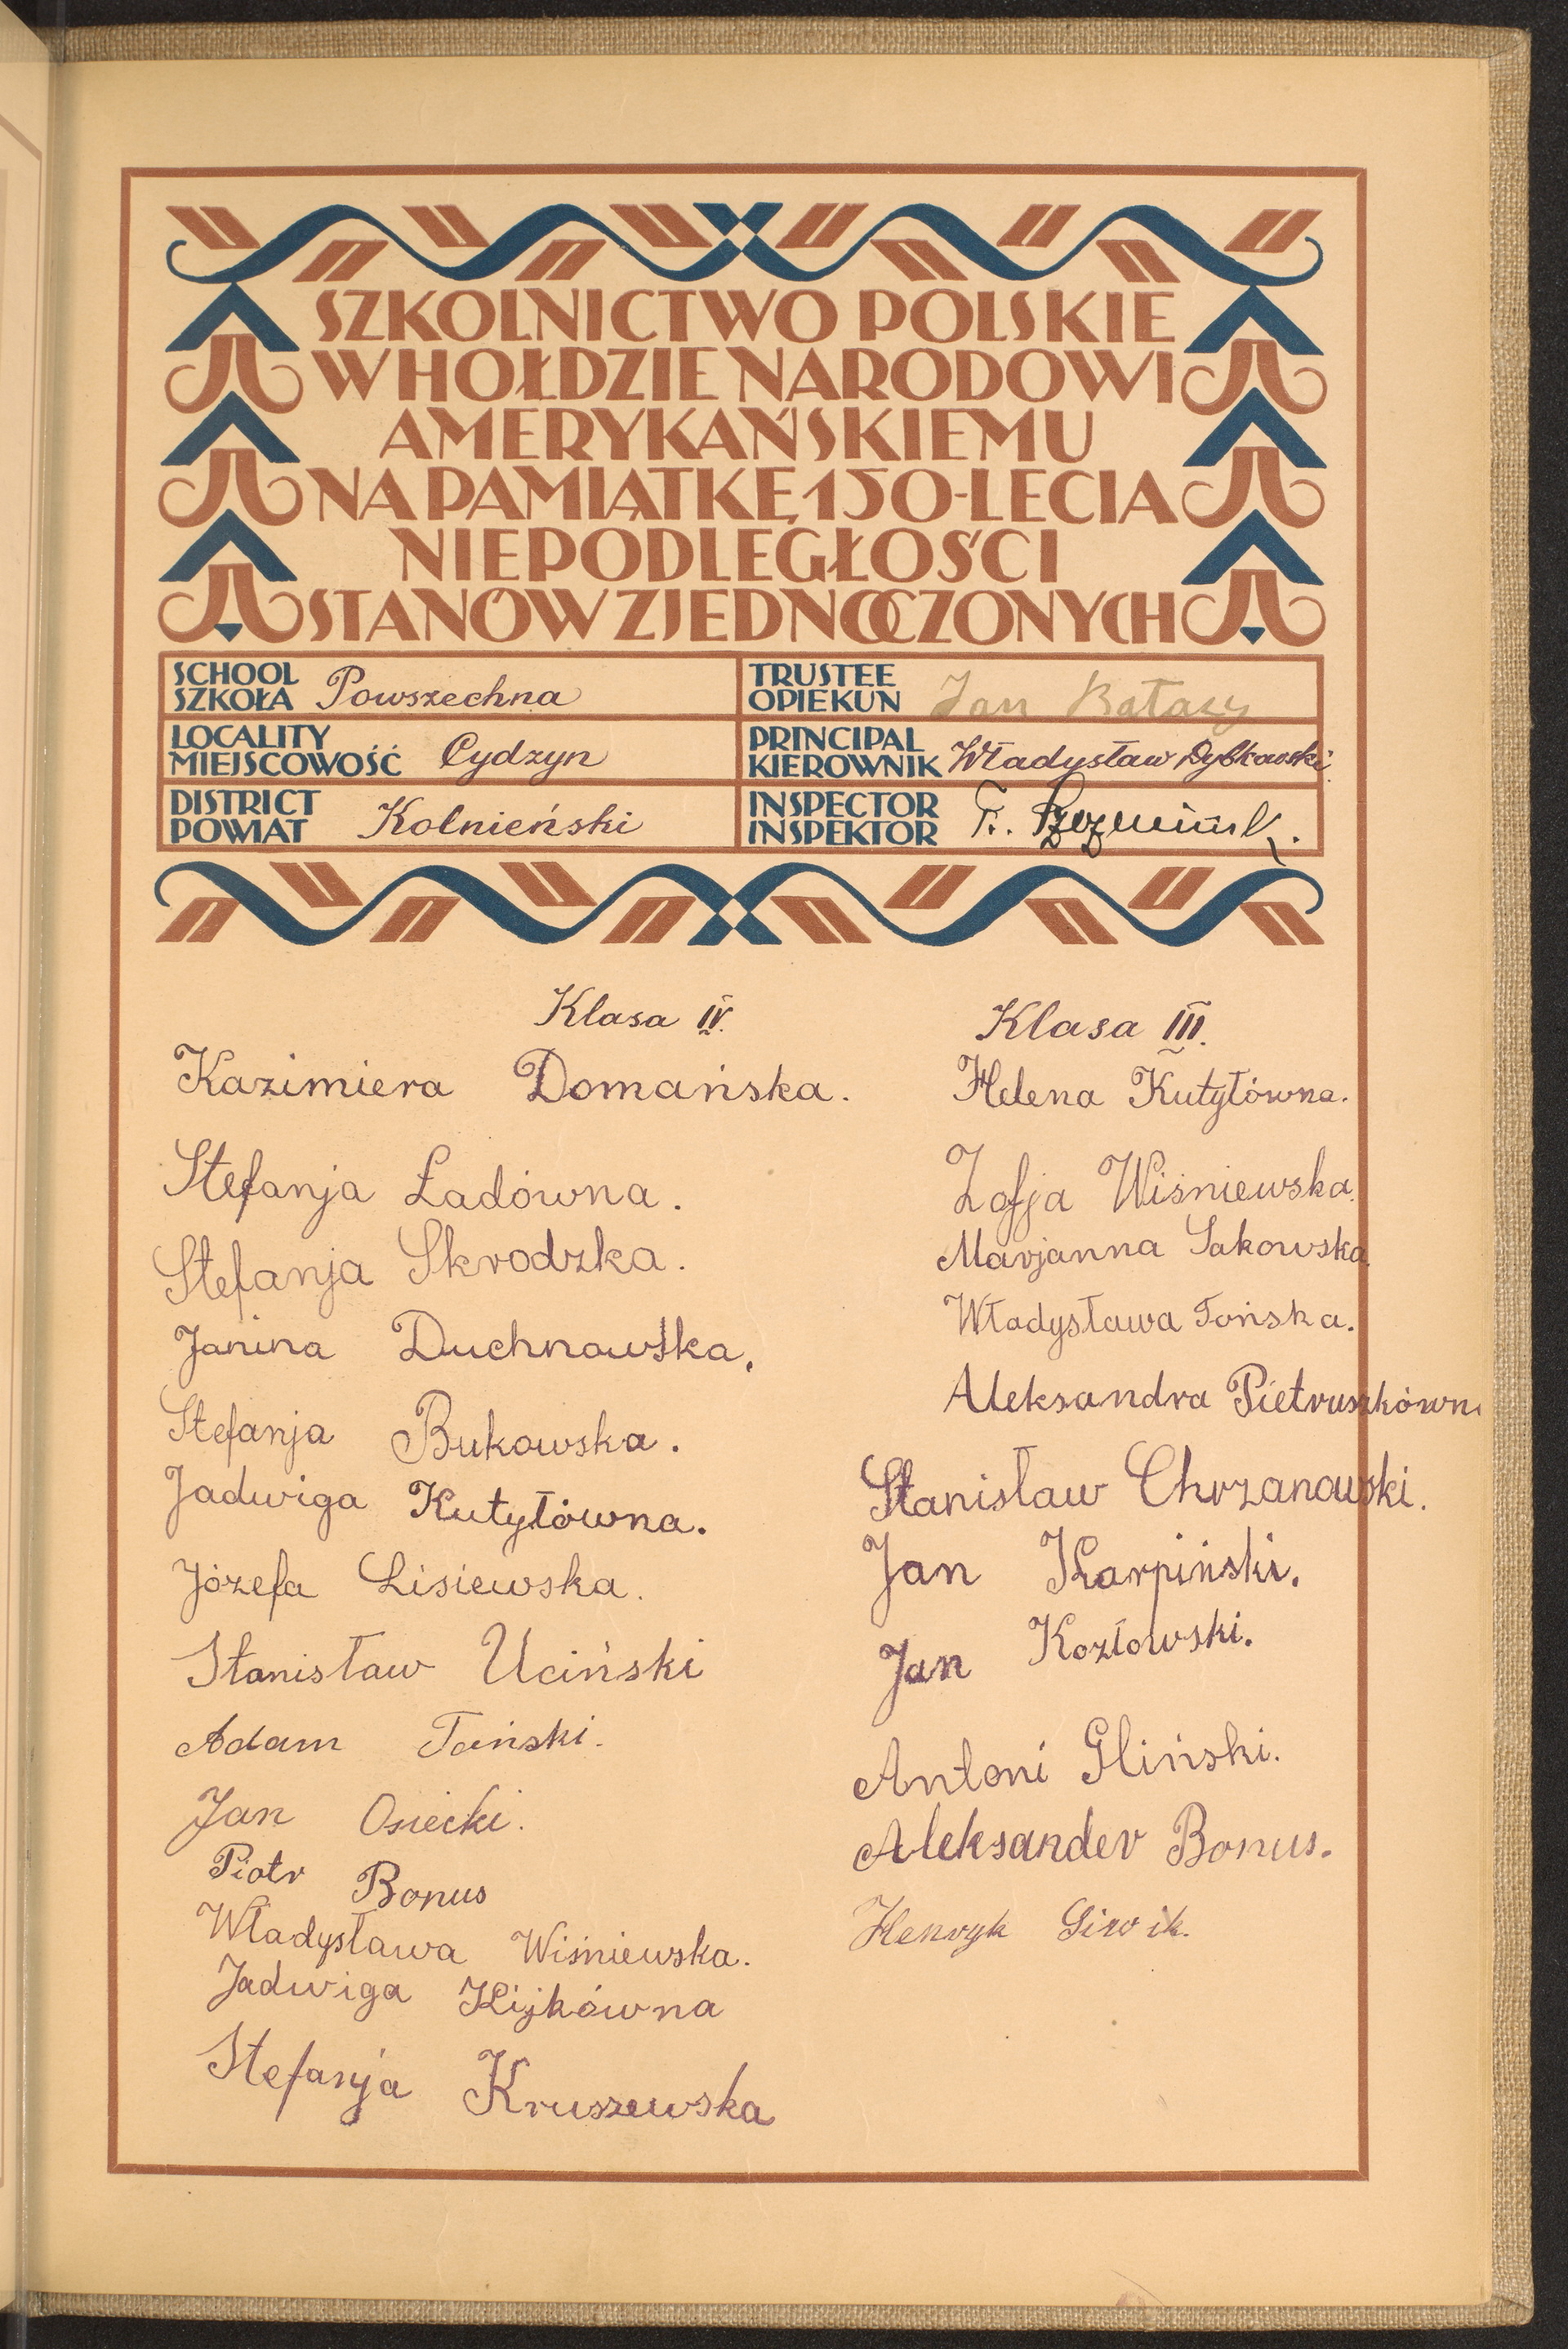 SZKOLNICTWO POLSKIE
W HOŁDZIE NARODOWI
AMERYKAŃSKIEMU
NA PAMIĄTKĘ 150-LECIA
NIEPODLEGŁOŚCI
STANÓW ZJEDNOCZONYCH
SCHOOL
SZKOŁA Powszechna
TRUSTEE
OPIEKUN Jan
LOCALITY
MIEJSCOWOŚĆ Cydzyn
PRINCIPAL
KIEROWNIK Władysław Dybkowski
DISTRICT
POWIAT Kolnieński
INSPECTOR
INSPEKTOR
Klasa IV.
Kazimiera Domańska.
Stefanja Ładówna.
Stefanja Skrodzka.
Janina Duchnowska.
Stefanja Bukowska.
Jadwiga Kutyłówna.
Józefa Lisiewska.
Stanisław Uciński
Adam Toński.
Jan Osiecki.
Piotr Bonus
Władysława Wiśniewska.
Jadwiga Kijkówna
Stefanja Kruszewska
Klasa III.
Helena Kutyłówna.
Zofja Wiśniewska.
Marjanna Sakowska.
Władysława Tońska.
Aleksandra Pietruszkówn
Stanisław Chrzanowski.
Jan Karpiński.
Jan Kozłowski.
Antoni Gliński.
Aleksander Bonus.
Henryk Siwik.